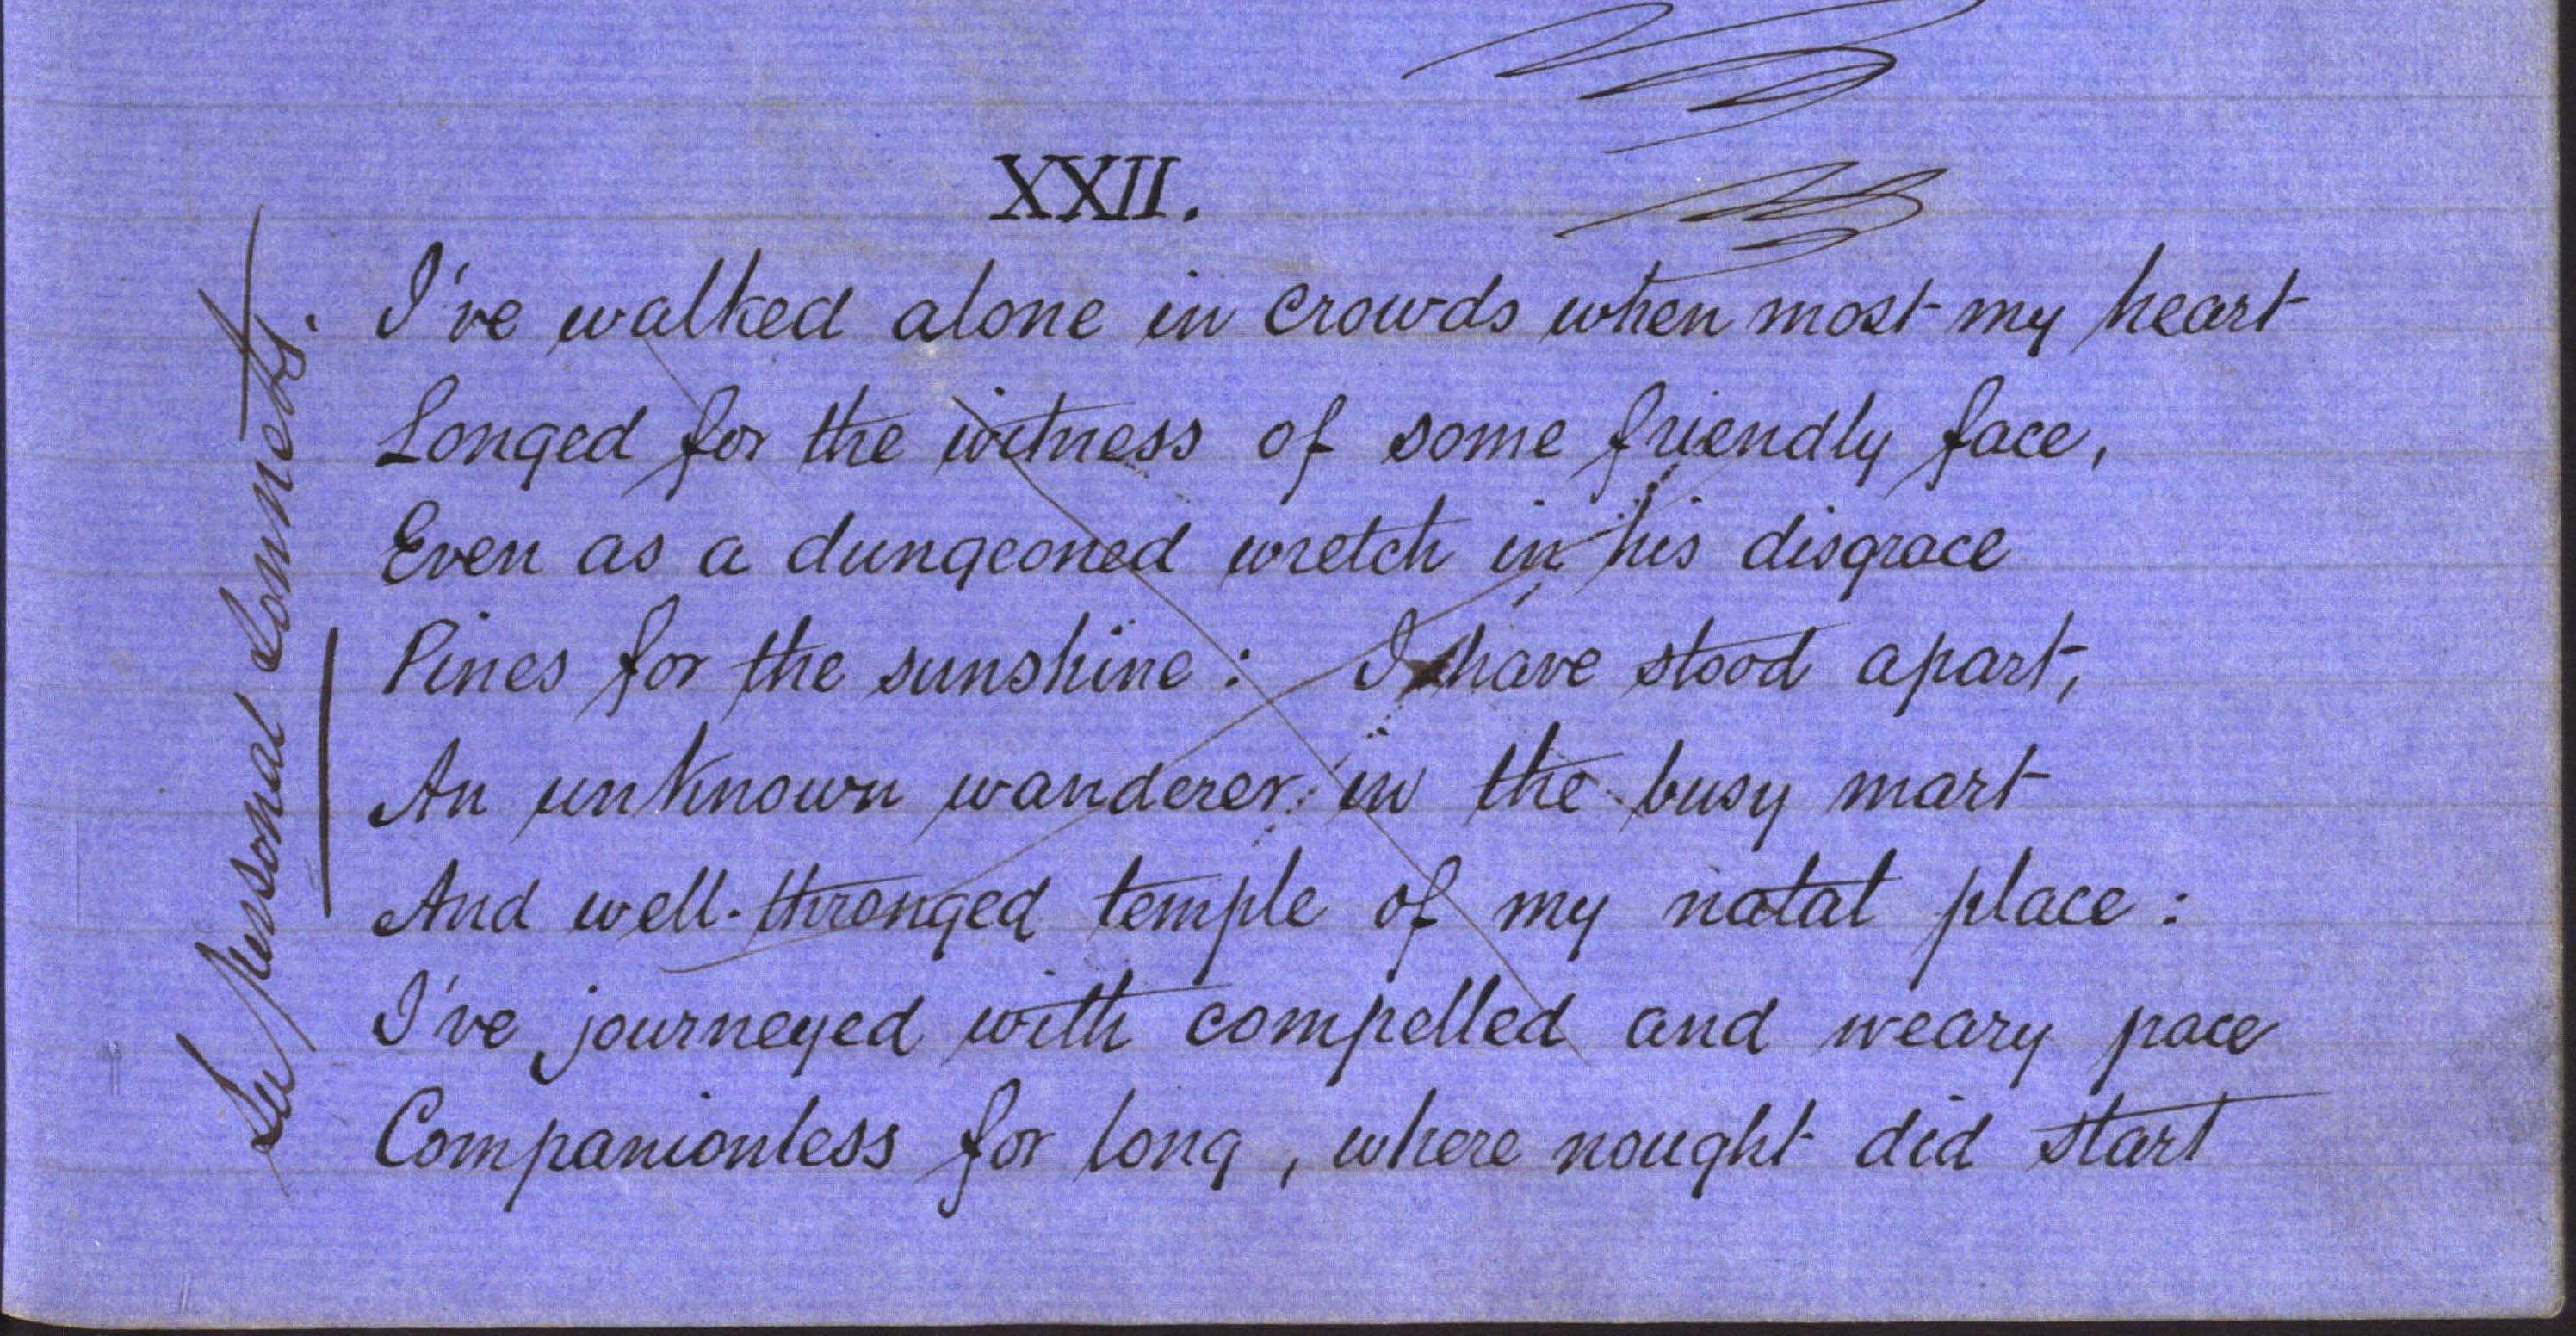 XXII.
I've walked alone in crowds when most my heart
Longed for the witness of some friendly face,
Even as a dungeoned wretch in his disgrace
Pines for the sunshine: I have stood apart,
An unknown wanderer in the busy mart
And well-thronged temple of my natal place:
I've journeyed with compelled and weary pace
Companionless for long, where nought did start
See personal Sonnets.